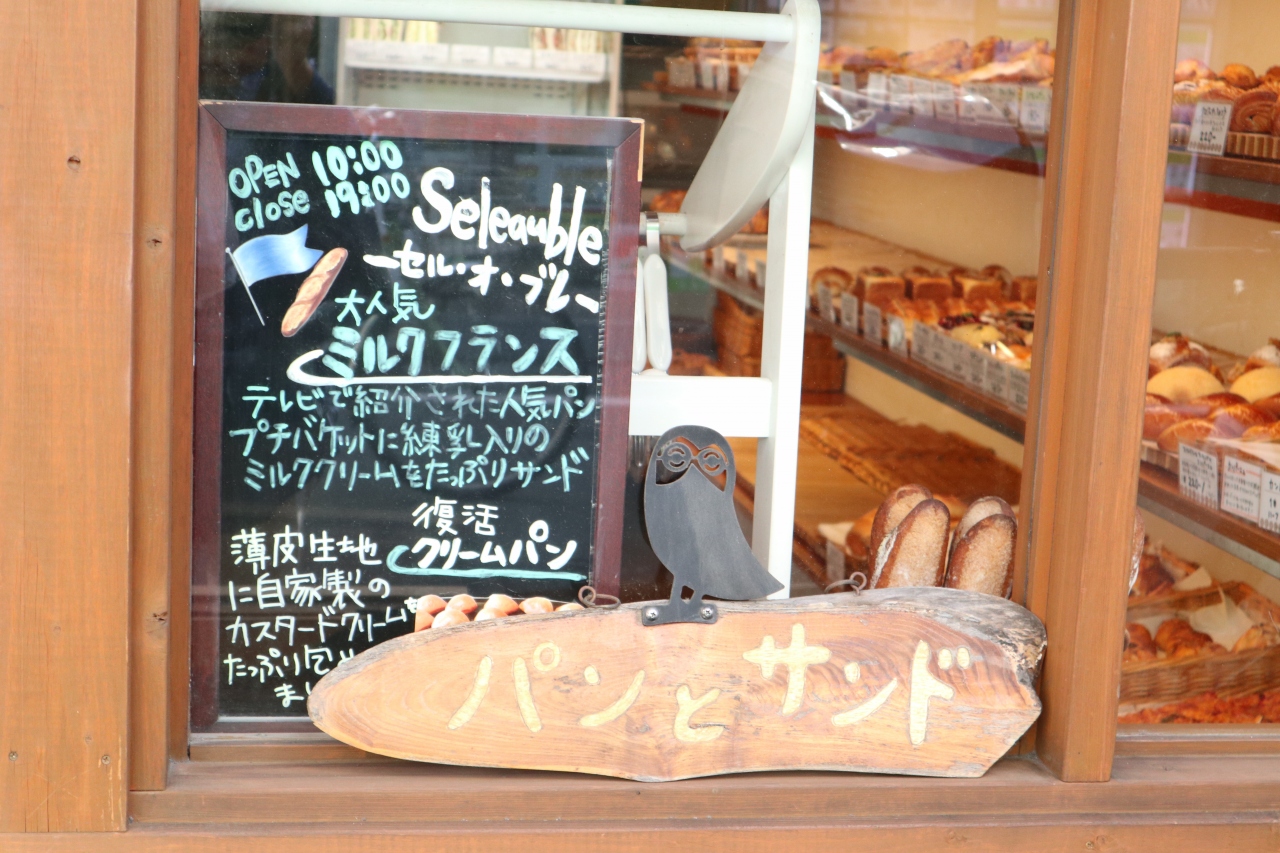 OPEN 10:00
close 19:00
Seleauble
ーセル・オ・ブレー
大人気
ミルクフランス
テレビで紹介された人気パン
プチバケットに練乳入りの
ミルククリームをたっぷりサンド
復活
クリームパン
薄皮生地
に自家製の
カスタードクリームを
たっぷり包
まし
パンとサンド